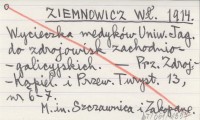 ZIEMNOWICZ Wł. 1914.
Wycieczka medyków Uniw. Jag.
do zdrojowisk zachodnio-
-galicyjskich. — Prz. Zdroj.-
-Kąpiel. i Przew. Turyst. 13,
nr 6-7.
M. in. Szczawnica i Zakopane.